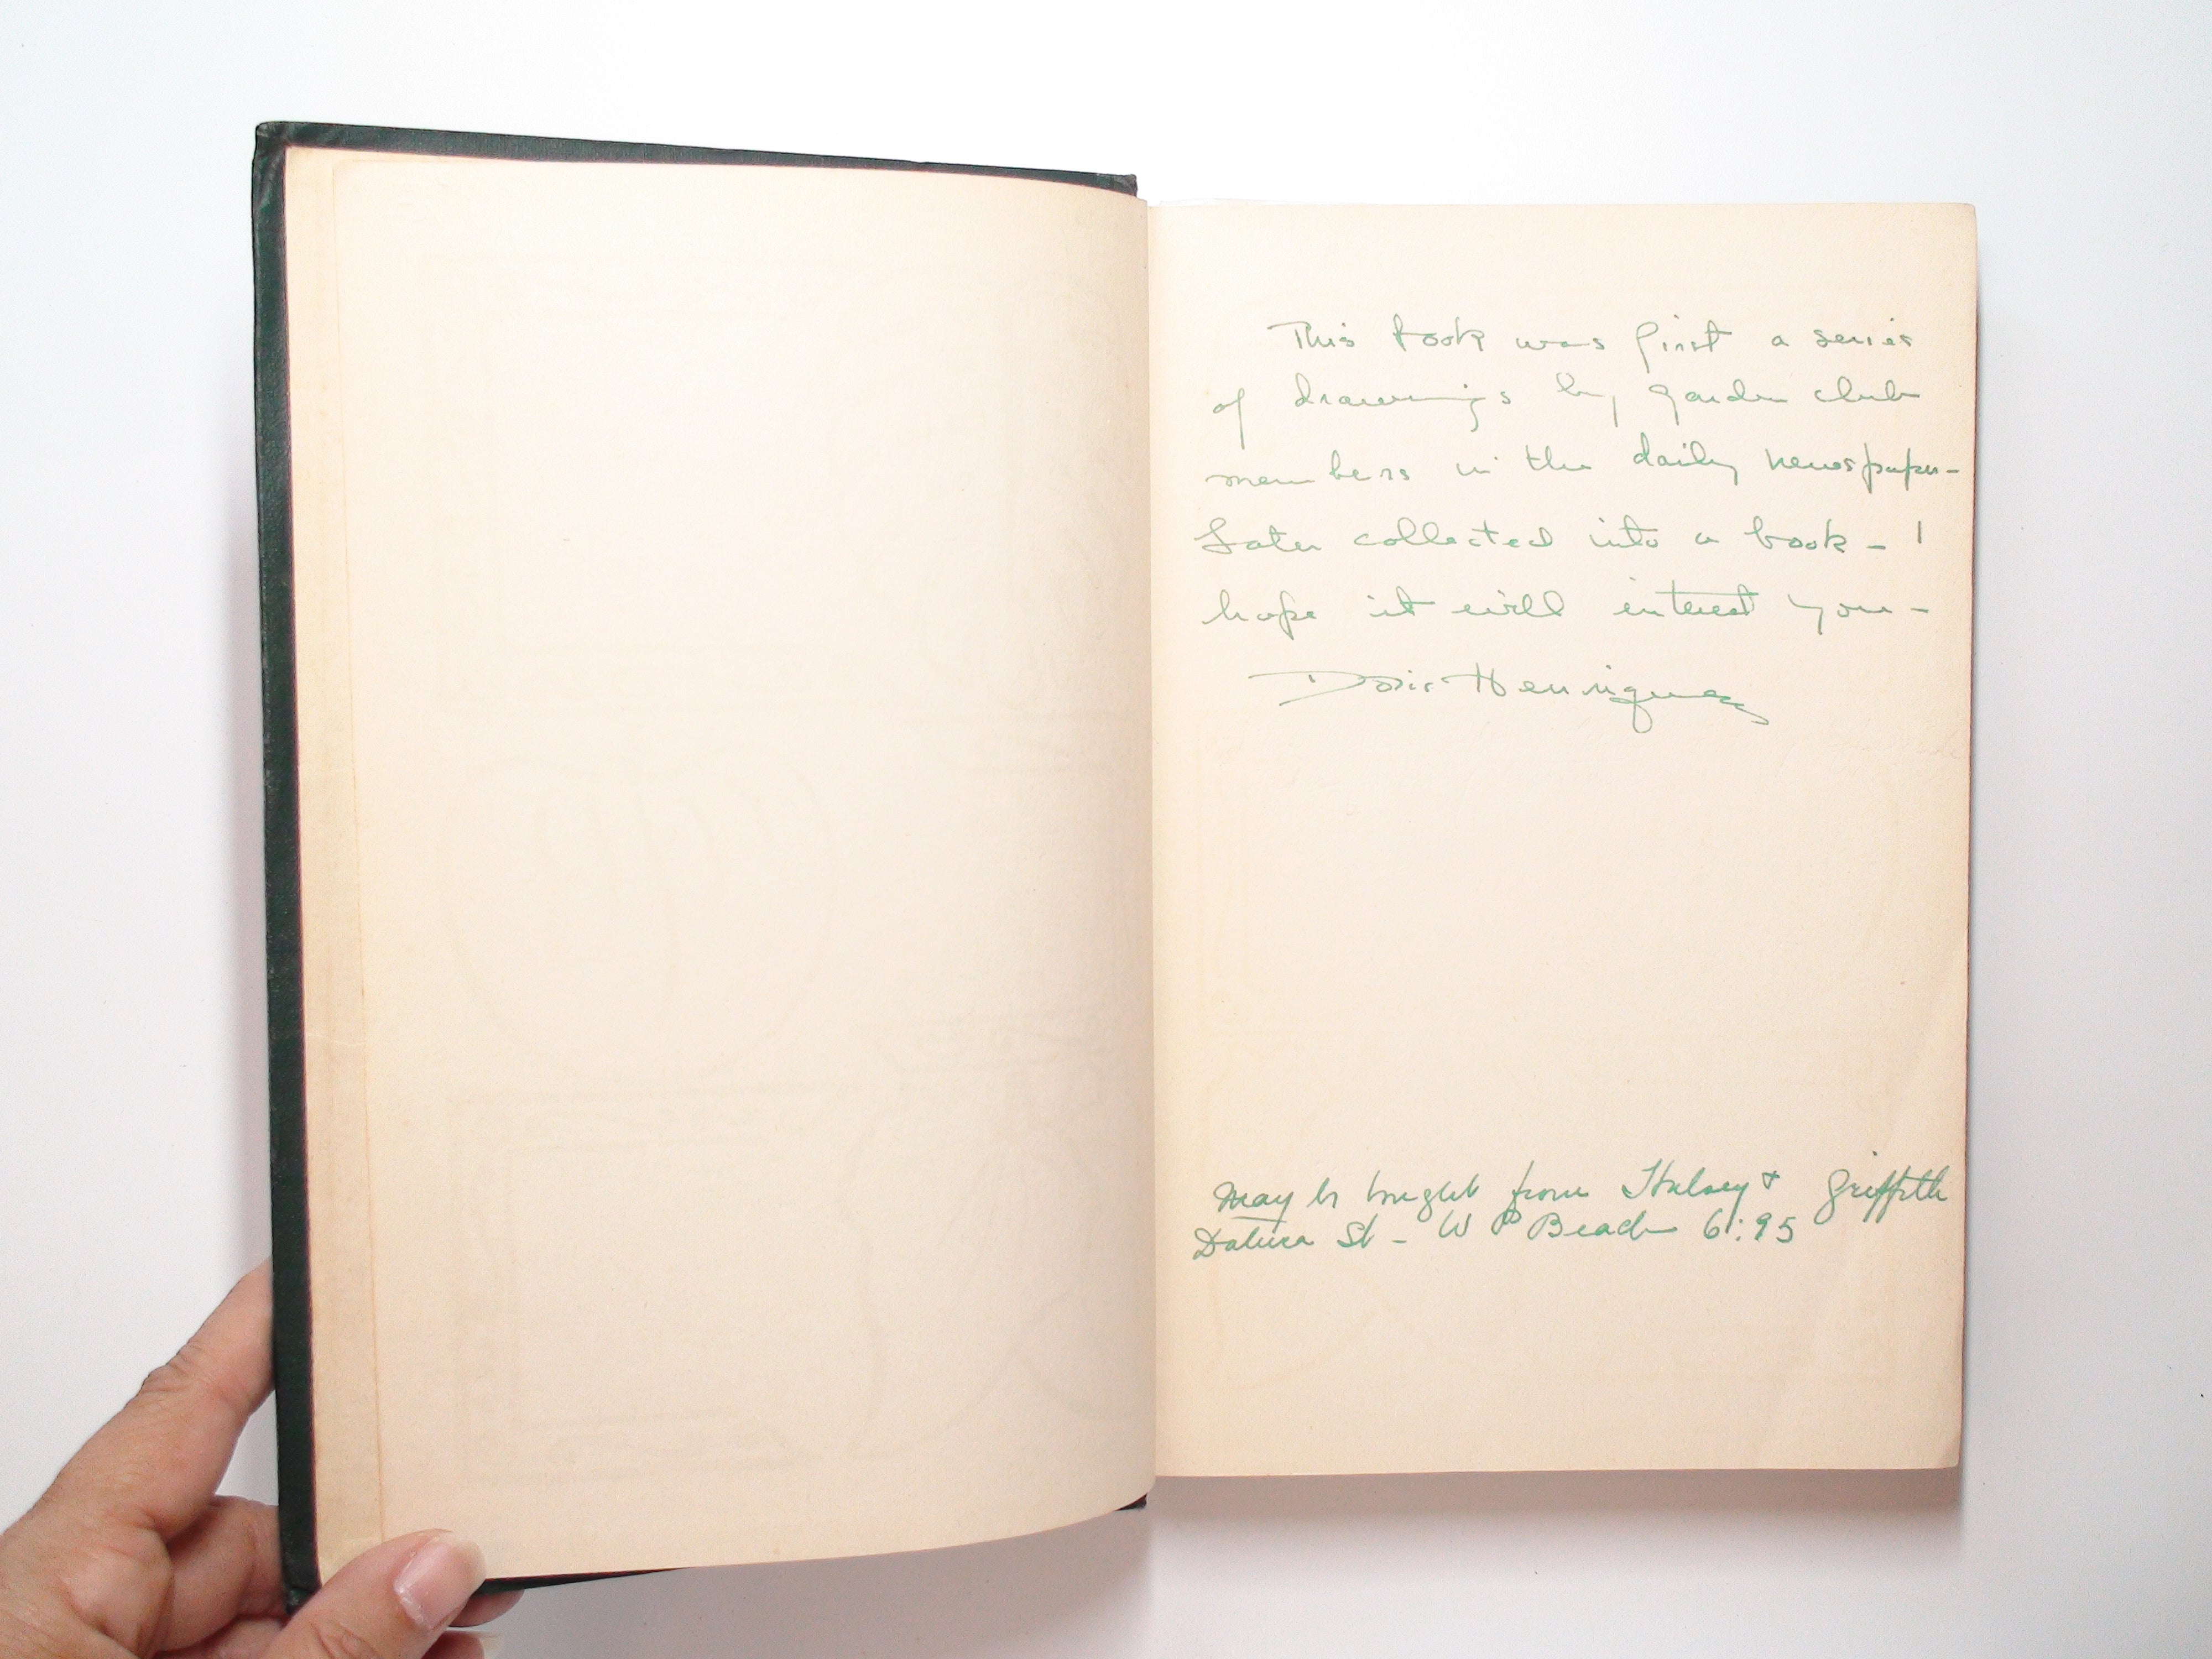 This book was first a series
of drawings by garden club
members in the daily newspaper-
Later collected into a book - I
hope it will interest you -
Doris Henriquez
May be bought from Halsey & Griffith
Datura St - W P Beach 6:95